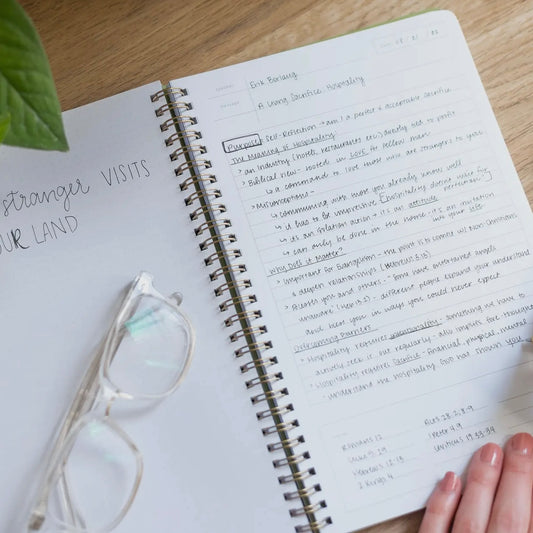 stranger VISITS
OUR LAND
08 / 21 / 22
Erik Borlaug
A Living Sacrifice: Hospitality
Purpose: Self-Reflection → am I a perfect & acceptable sacrifice
The Meaning of Hospitality:
* an industry (hotels, restaurants etc.) directly tied to profit
* Biblical view - rooted in LOVE for fellow man
↳ a command to love those who are strangers to you
* Misconceptions -
↳ communing with those you already know well
↳ it has to be impressive [hospitality doesn't have to be perfection]
↳ its an action → its an attitude
↳ can only be done in the home - it's an invitation into your life
Why Does it Matter?
* Important for Evangelism - the point is to connect w/ Non Christians
& deepen relationships (Hebrews 13:13)
* Blesses you and others - Some have entertained angels
unaware (Heb 13:2) - different people expand your understand
and bless you in ways you could never expect
Overcoming Barriers
* Hospitality requires intentionality - something we have to
actively seek out regularly - also implies forethought
* Hospitality requires Sacrifice - financial, physical, mental
* understand the hospitality God has shown you
Romans 12
Luke 9:29
Hebrews 12, 13
2 Kings 4
Acts 28:2, 8-9
1 Peter 4:9
Leviticus 19:33-34